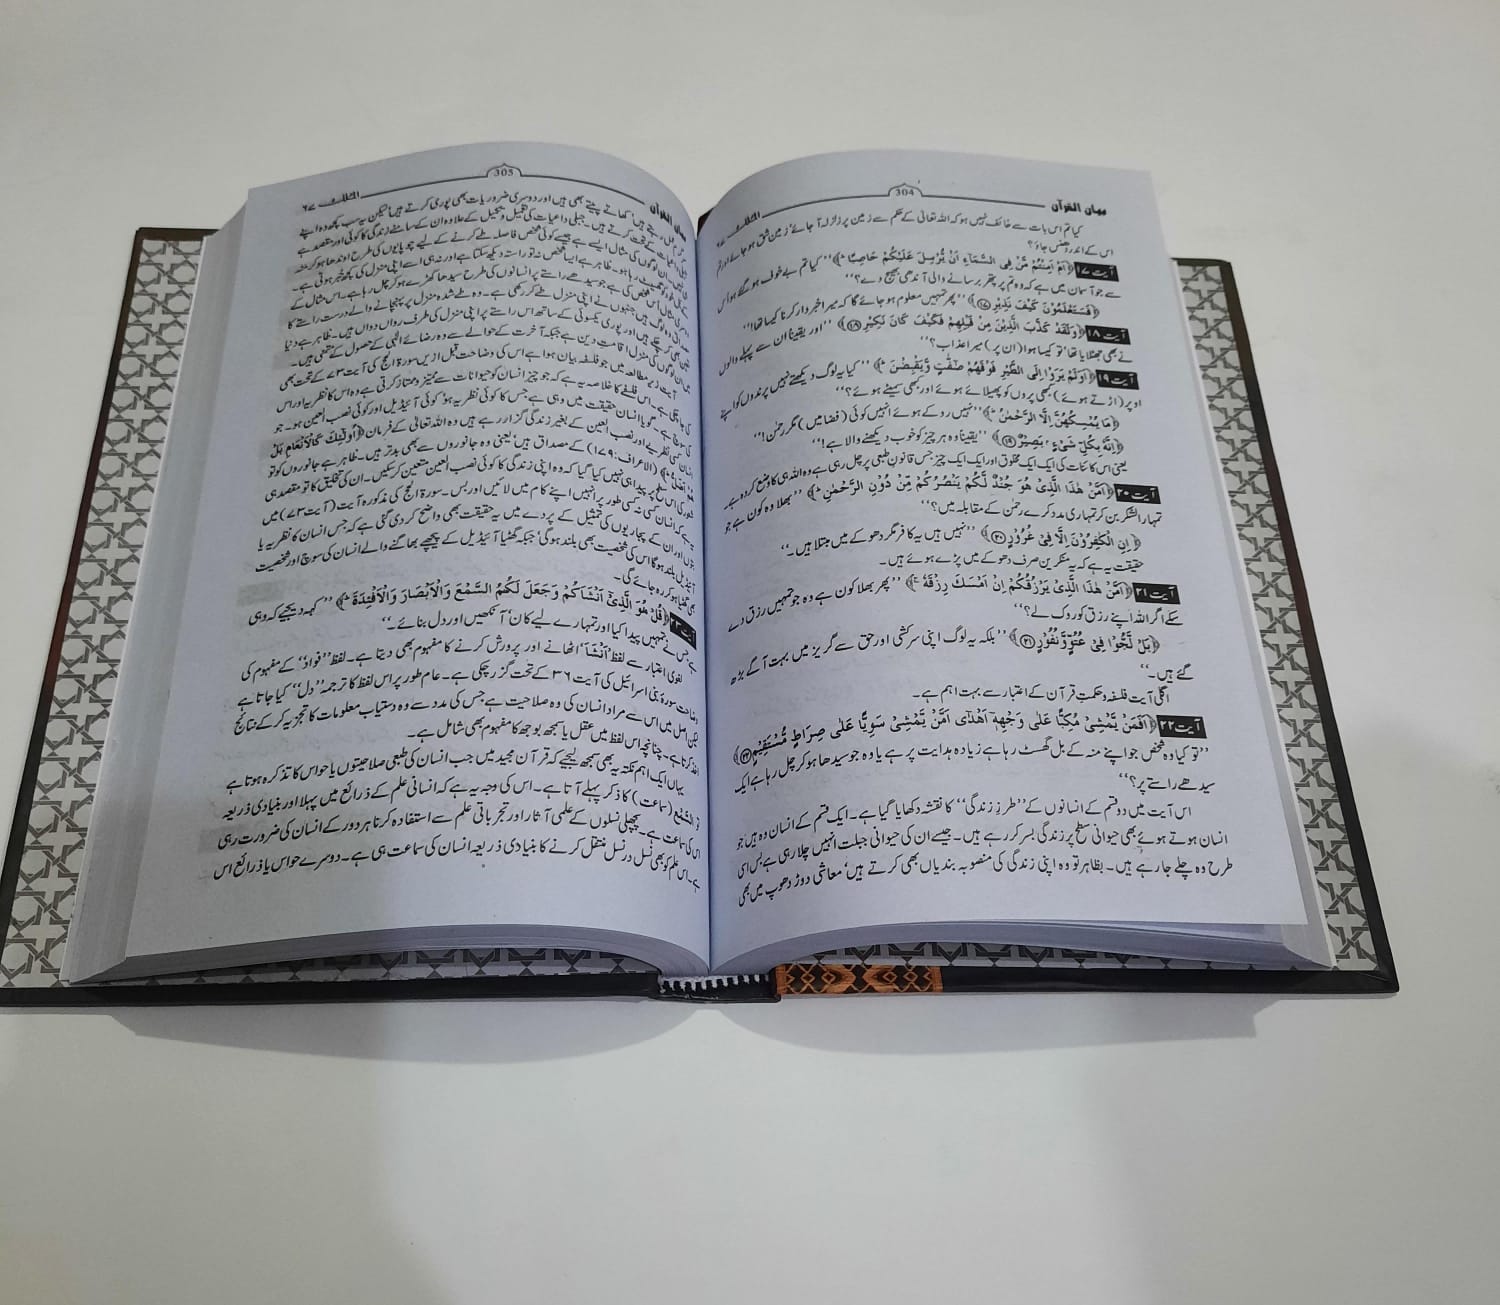 بیان القرآن
304
الملک ۶۷
کیا تم اس بات سے خائف نہیں ہو کہ اللہ تعالیٰ کے حکم سے زمین پر زلزلہ آ جائے‘ زمین شق ہو جائے اور تم
اس کے اندر دھنس جاؤ؟
آیت ۱۷ ﴿اَمْ اَمِنْتُمْ مَّنْ فِی السَّمَآءِ اَنْ یُّرْسِلَ عَلَیْكُمْ حَاصِبًا ؕ﴾ ’’کیا تم بے خوف ہو گئے ہو اُس
سے جو آسمان میں ہے کہ وہ تم پر پتھر برسانے والی آندھی بھیج دے؟‘‘
﴿فَسَتَعْلَمُوْنَ كَیْفَ نَذِیْرِ ﴿۱۷﴾﴾ ’’پھر تمہیں معلوم ہو جائے گا کہ میرا خبردار کرنا کیسا تھا!‘‘
آیت ۱۸ ﴿وَلَقَدْ كَذَّبَ الَّذِیْنَ مِنْ قَبْلِهِمْ فَكَیْفَ كَانَ نَكِیْرِ ﴿۱۸﴾﴾ ’’اور یقیناً ان سے پہلے والوں
نے بھی جھٹلایا تھا تو کیسا ہوا (ان پر) میرا عذاب؟‘‘
آیت ۱۹ ﴿اَوَلَمْ یَرَوْا اِلَی الطَّیْرِ فَوْقَهُمْ صٰٓفّٰتٍ وَّیَقْبِضْنَ ؕ﴾ ’’کیا یہ لوگ دیکھتے نہیں پرندوں کو اپنے
اوپر (اڑتے ہوئے) کبھی پروں کو پھیلائے ہوئے اور کبھی سمیٹے ہوئے؟‘‘
﴿مَا یُمْسِكُهُنَّ اِلَّا الرَّحْمٰنُ ؕ﴾ ’’نہیں روکے ہوئے انہیں کوئی (فضا میں) مگر رحمٰن!‘‘
﴿اِنَّهٗ بِكُلِّ شَیْءٍۭ بَصِیْرٌ ﴿۱۹﴾﴾ ’’یقیناً وہ ہر چیز کو خوب دیکھنے والا ہے!‘‘
یعنی اس کائنات کی ایک ایک مخلوق اور ایک ایک چیز جس قانونِ طبعی پر چل رہی ہے وہ اللہ ہی کا وضع کردہ ہے۔
آیت ۲۰ ﴿اَمَّنْ هٰذَا الَّذِیْ هُوَ جُنْدٌ لَّكُمْ یَنْصُرُكُمْ مِّنْ دُوْنِ الرَّحْمٰنِ ؕ﴾ ’’بھلا وہ کون ہے جو
تمہارا لشکر بن کر تمہاری مدد کرے رحمٰن کے مقابلہ میں؟‘‘
﴿اِنِ الْكٰفِرُوْنَ اِلَّا فِیْ غُرُوْرٍ ﴿۲۰﴾﴾ ’’نہیں ہیں یہ کافر مگر دھوکے میں مبتلا ہیں۔‘‘
حقیقت یہ ہے کہ یہ منکرین صرف دھوکے میں پڑے ہوئے ہیں۔
آیت ۲۱ ﴿اَمَّنْ هٰذَا الَّذِیْ یَرْزُقُكُمْ اِنْ اَمْسَكَ رِزْقَهٗ ۚ﴾ ’’پھر بھلا کون ہے وہ جو تمہیں رزق دے
سکے اگر اللہ اپنے رزق کو روک لے؟‘‘
﴿بَلْ لَّجُّوْا فِیْ عُتُوٍّ وَّنُفُوْرٍ ﴿۲۱﴾﴾ ’’بلکہ یہ لوگ اپنی سرکشی اور حق سے گریز میں بہت آگے بڑھ
گئے ہیں۔‘‘
اگلی آیت فلسفہ و حکمتِ قرآن کے اعتبار سے بہت اہم ہے۔
آیت ۲۲ ﴿اَفَمَنْ یَّمْشِیْ مُكِبًّا عَلٰی وَجْهِهٖۤ اَهْدٰۤی اَمَّنْ یَّمْشِیْ سَوِیًّا عَلٰی صِرَاطٍ مُّسْتَقِیْمٍ ﴿۲۲﴾﴾
’’تو کیا وہ شخص جو اپنے منہ کے بل گھسٹ رہا ہے زیادہ ہدایت پر ہے یا وہ جو سیدھا ہو کر چل رہا ہے ایک
سیدھے راستے پر؟‘‘
اس آیت میں دو قسم کے انسانوں کے ’’طرزِ زندگی‘‘ کا نقشہ دکھایا گیا ہے۔ ایک قسم کے انسان وہ ہیں جو
انسان ہوتے ہوئے بھی حیوانی سطح پر زندگی بسر کر رہے ہیں۔ جیسے ان کی حیوانی جبلت انہیں چلا رہی ہے بس اسی
طرح وہ چلے جا رہے ہیں۔ بظاہر تو وہ اپنی زندگی کی منصوبہ بندیاں بھی کرتے ہیں‘ معاشی دوڑ دھوپ میں بھی
بیان القرآن
305
الملک ۶۷
کھاتے پیتے بھی ہیں اور دوسری ضروریات بھی پوری کرتے ہیں‘ لیکن یہ سب کچھ وہ اپنے
جبلی داعیات کی تعمیل و تکمیل کے علاوہ ان کے سامنے زندگی کا کوئی اور مقصد ہے
ان لوگوں کی مثال ایسے ہے جیسے کوئی شخص فاصلہ طے کرنے کے لیے چوپایوں کی طرح اوندھا ہو کر منہ
رہا ہو۔ ظاہر ہے ایسا شخص نہ تو راستہ دیکھ سکتا ہے اور نہ ہی اسے اپنی منزل کی کچھ خبر ہوتی ہے۔
مثال اُس شخص کی ہے جو سیدھے راستے پر انسانوں کی طرح سیدھا کھڑے ہو کر چل رہا ہے۔ اس مثال کے
وہ لوگ ہیں جنہوں نے اپنی منزل طے کر رکھی ہے۔ وہ طے شدہ منزل پر پہنچانے والے درست راستے کا
کر چکے ہیں اور پوری یکسوئی کے ساتھ اس راستے پر اپنی منزل کی طرف رواں دواں ہیں۔ ظاہر ہے دنیا
ان لوگوں کی منزل اقامتِ دین ہے جبکہ آخرت کے حوالے سے وہ رضائے الٰہی کے حصول کے متمنی ہیں۔
آیت زیر مطالعہ میں جو فلسفہ بیان ہوا ہے اس کی وضاحت قبل ازیں سورۃ الحج کی آیت ۷۳ کے تحت بھی
کی جا چکی ہے۔ اس فلسفے کا خلاصہ یہ ہے کہ جو چیز انسان کو حیوانات سے ممیز و ممتاز کرتی ہے وہ اس کا نظریہ اور اس
کی سوچ ہے۔ گویا انسان حقیقت میں وہی ہے جس کا کوئی نظریہ ہو‘ کوئی آئیڈیل اور کوئی نصب العین ہو۔ جو
انسان کسی نظریے اور نصب العین کے بغیر زندگی گزار رہے ہیں وہ اللہ تعالیٰ کے فرمان ﴿اُولٰٓئِكَ كَالْاَنْعَامِ بَلْ
هُمْ اَضَلُّ ؕ﴾ (الاعراف:۱۷۹) کے مصداق ہیں‘ یعنی وہ جانوروں سے بھی بدتر ہیں۔ ظاہر ہے جانوروں کو تو
شعور کی اس سطح پر پیدا ہی نہیں کیا گیا کہ وہ اپنی زندگی کا کوئی نصب العین متعین کر سکیں۔ ان کی تخلیق کا تو مقصد ہی
یہ ہے کہ انسان کسی نہ کسی طور پر انہیں اپنے کام میں لائیں اور بس۔ سورۃ الحج کی مذکورہ آیت (آیت ۷۳) میں
بتوں اور ان کے پجاریوں کی تمثیل کے پردے میں یہ حقیقت بھی واضح کر دی گئی ہے کہ جس انسان کا نظریہ یا
آئیڈیل بلند ہوگا اس کی شخصیت بھی بلند ہوگی‘ جبکہ گھٹیا آئیڈیل کے پیچھے بھاگنے والے انسان کی سوچ اور شخصیت
بھی گھٹیا ہو کر رہ جائے گی۔
آیت ۲۳ ﴿قُلْ هُوَ الَّذِیْۤ اَنْشَاَكُمْ وَجَعَلَ لَكُمُ السَّمْعَ وَالْاَبْصَارَ وَالْاَفْئِدَةَ ؕ﴾ ’’کہہ دیجیے کہ وہی
ہے جس نے تمہیں پیدا کیا اور تمہارے لیے کان‘ آنکھیں اور دل بنائے۔‘‘
لغوی اعتبار سے لفظ ’اَنْشَاَ‘ اٹھانے اور پرورش کرنے کا مفہوم بھی دیتا ہے۔ لفظ ’’فواد‘‘ کے مفہوم کی
وضاحت سورۂ بنی اسرائیل کی آیت ۳۶ کے تحت گزر چکی ہے۔ عام طور پر اس لفظ کا ترجمہ ’’دل‘‘ کیا جاتا ہے
لیکن اصل میں اس سے مراد انسان کی وہ صلاحیت ہے جس کی مدد سے وہ دستیاب معلومات کا تجزیہ کر کے نتائج
اخذ کرتا ہے۔ چنانچہ اس لفظ میں عقل یا سمجھ بوجھ کا مفہوم بھی شامل ہے۔
یہاں ایک اہم نکتہ یہ بھی سمجھ لیجیے کہ قرآن مجید میں جب انسان کی طبعی صلاحیتوں یا حواس کا تذکرہ ہوتا ہے
تو السَّمْع (سماعت) کا ذکر پہلے آتا ہے۔ اس کی وجہ یہ ہے کہ انسانی علم کے ذرائع میں پہلا اور بنیادی ذریعہ
اس کی سماعت ہے۔ پچھلی نسلوں کے علمی آثار اور تجرباتی علم سے استفادہ کرنا ہر دور کے انسان کی ضرورت رہی
ہے۔ اس علم کو بھی نسل در نسل منتقل کرنے کا بنیادی ذریعہ انسان کی سماعت ہی ہے۔ دوسرے حواس یا ذرائع اس